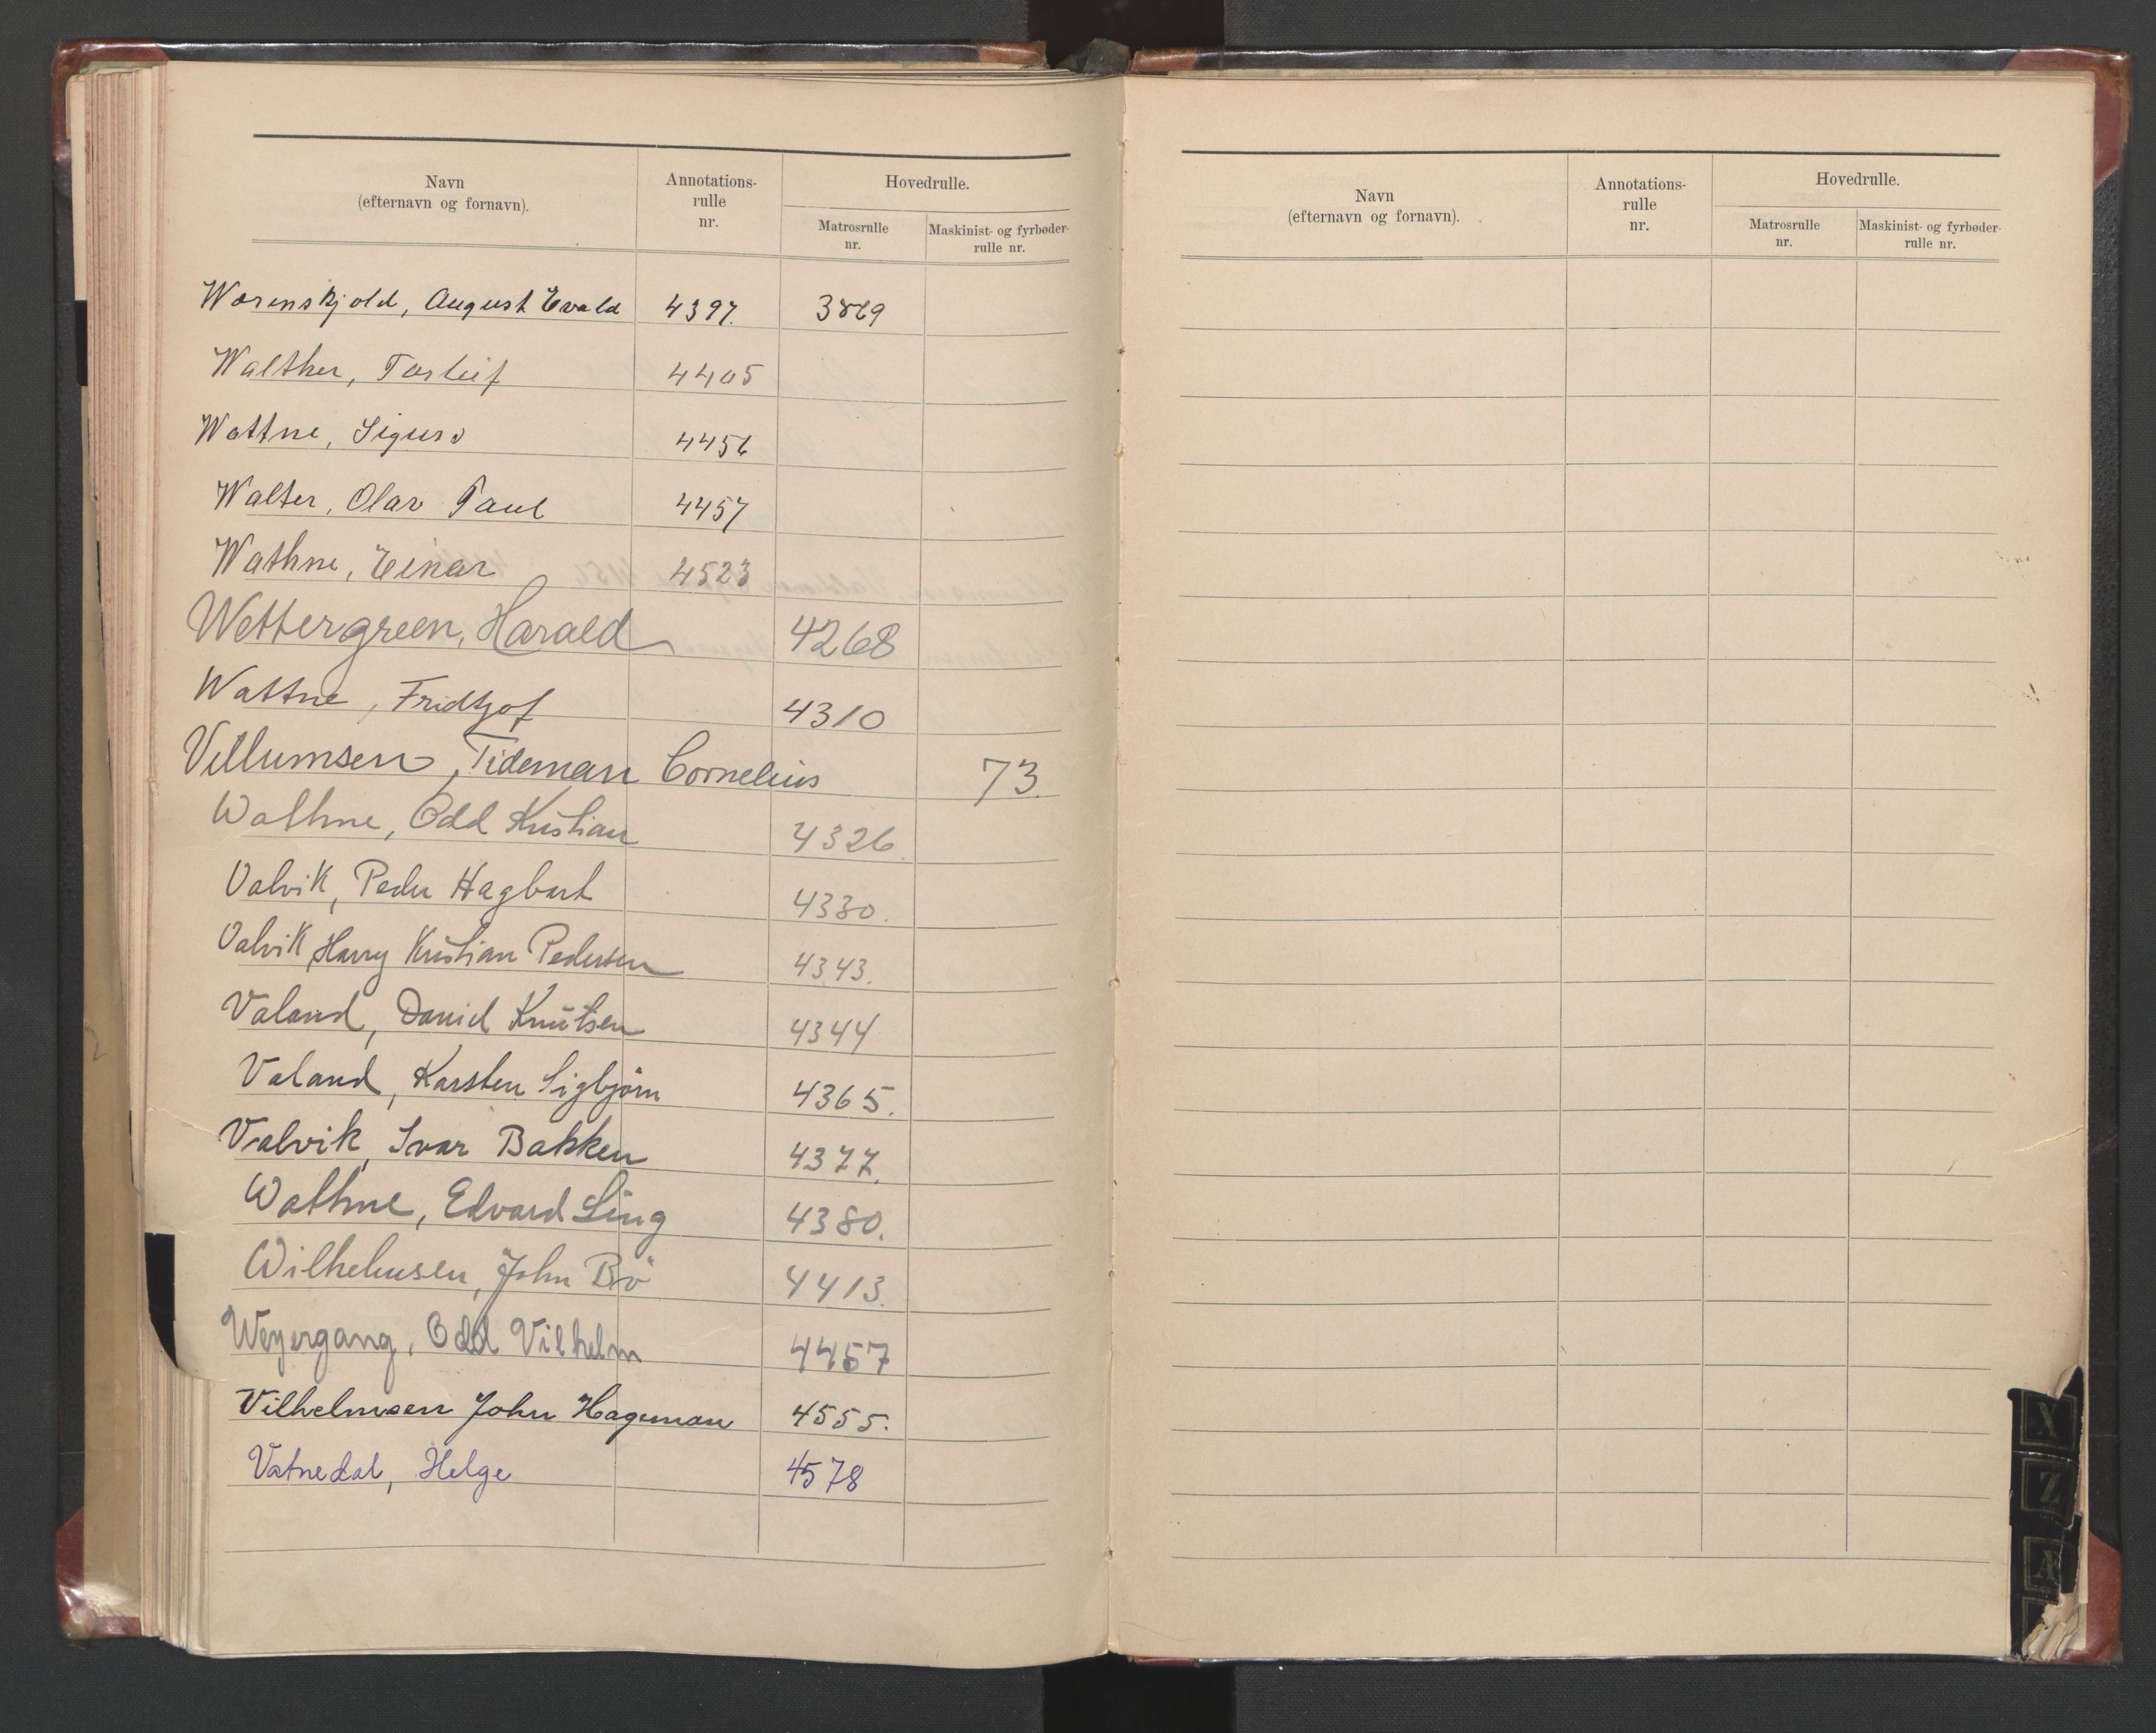 Navn
(efternavn og fornavn).
Annotations-
rulle
nr.
Hovedrulle.
Matrosrulle
nr.
Maskinist- og fyrbøder-
rulle nr.
Worenskjold, August Evald 4397. 3869
Walther, Torleif 4405
Wattne, Sigurd 4456
Walter, Olav Paul 4457
Wathne, Einar 4523
Wettergreen, Harald 4268
Wattne, Fridtjof 4310
Villumsen, Tideman Cornelius 73.
Wathne, Odd Kristian 4326.
Valvik, Peder Hagbart 4330.
Valvik, Harry Kristian Pedersen 4343.
Valand, Daniel Knutsen 4344
Valand, Karsten Sigbjörn 4365.
Valvik, Ivar Bakken 4377.
Wathne, Edvard Ling 4380.
Wilhelmsen, John Bö 4413.
Weyergang, Odd Vilhelm 4457
Vilhelmsen John Hageman 4555.
Vatnedal, Helge 4578
Navn
(efternavn og fornavn).
Annotations-
rulle
nr.
Hovedrulle.
Matrosrulle
nr.
Maskinist- og fyrbøder-
rulle nr.
X
Z